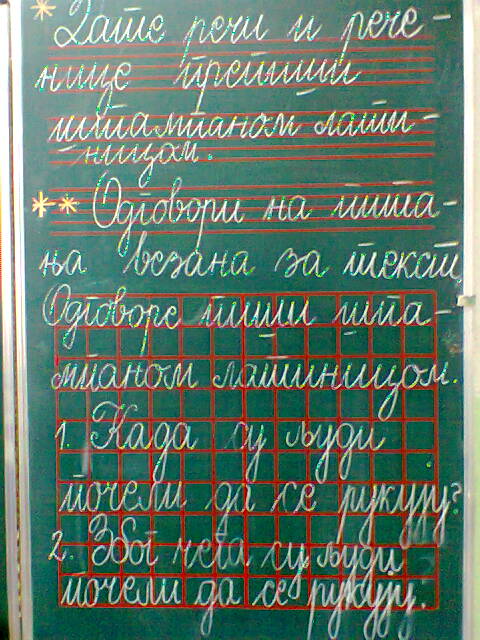 * Дате речи и рече-
нице препиши
штампаном лати-
ницом.
** Одговори на пита-
ња везана за текст.
Одговоре пиши шта-
мпаном латиницом.
1. Када су људи
почели да се рукују?
2. Због чега су људи
почели да се рукују.